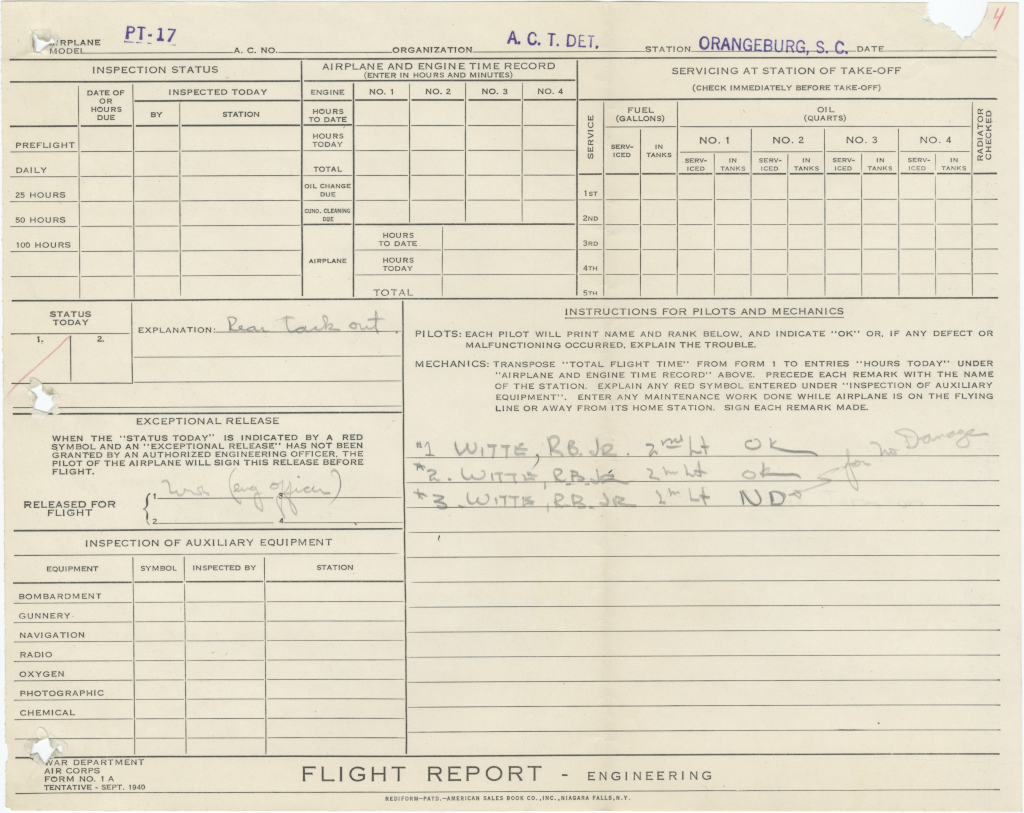 4
AIRPLANE MODEL PT-17 A. C. NO. ORGANIZATION A. C. T. DET. STATION ORANGEBURG, S. C. DATE
INSPECTION STATUS
DATE OF OR HOURS DUE
INSPECTED TODAY
BY STATION
PREFLIGHT
DAILY
25 HOURS
50 HOURS
100 HOURS
AIRPLANE AND ENGINE TIME RECORD
(ENTER IN HOURS AND MINUTES)
ENGINE NO. 1 NO. 2 NO. 3 NO. 4
HOURS TO DATE
HOURS TODAY
TOTAL
OIL CHANGE DUE
CUNO. CLEANING DUE
AIRPLANE
HOURS TO DATE
HOURS TODAY
TOTAL
SERVICING AT STATION OF TAKE-OFF
(CHECK IMMEDIATELY BEFORE TAKE-OFF)
SERVICE
FUEL (GALLONS)
OIL (QUARTS)
RADIATOR CHECKED
NO. 1 NO. 2 NO. 3 NO. 4
SERV-ICED IN TANKS SERV-ICED IN TANKS SERV-ICED IN TANKS SERV-ICED IN TANKS SERV-ICED IN TANKS
1ST
2ND
3RD
4TH
5TH
STATUS TODAY
1. 2.
EXPLANATION: Rear Tach out.
EXCEPTIONAL RELEASE
WHEN THE "STATUS TODAY" IS INDICATED BY A RED
SYMBOL AND AN "EXCEPTIONAL RELEASE" HAS NOT BEEN
GRANTED BY AN AUTHORIZED ENGINEERING OFFICER, THE
PILOT OF THE AIRPLANE WILL SIGN THIS RELEASE BEFORE
FLIGHT.
(eng officer)
RELEASED FOR FLIGHT
1 3
2 4
INSPECTION OF AUXILIARY EQUIPMENT
EQUIPMENT SYMBOL INSPECTED BY STATION
BOMBARDMENT
GUNNERY
NAVIGATION
RADIO
OXYGEN
PHOTOGRAPHIC
CHEMICAL
INSTRUCTIONS FOR PILOTS AND MECHANICS
PILOTS: EACH PILOT WILL PRINT NAME AND RANK BELOW, AND INDICATE "OK" OR, IF ANY DEFECT OR
MALFUNCTIONING OCCURRED, EXPLAIN THE TROUBLE.
MECHANICS: TRANSPOSE "TOTAL FLIGHT TIME" FROM FORM 1 TO ENTRIES "HOURS TODAY" UNDER
"AIRPLANE AND ENGINE TIME RECORD" ABOVE. PRECEDE EACH REMARK WITH THE NAME
OF THE STATION. EXPLAIN ANY RED SYMBOL ENTERED UNDER "INSPECTION OF AUXILIARY
EQUIPMENT". ENTER ANY MAINTENANCE WORK DONE WHILE AIRPLANE IS ON THE FLYING
LINE OR AWAY FROM ITS HOME STATION. SIGN EACH REMARK MADE.
#1 WITTE, R.B. JR. 2nd Lt OK
#2. WITTE, R.B. JR 2nd Lt OK
#3. WITTE, R.B. JR 2nd Lt ND
for no Damage
WAR DEPARTMENT
AIR CORPS
FORM NO. 1 A
TENTATIVE - SEPT. 1940
FLIGHT REPORT - ENGINEERING
REDIFORM-PATD.-AMERICAN SALES BOOK CO., INC., NIAGARA FALLS, N.Y.